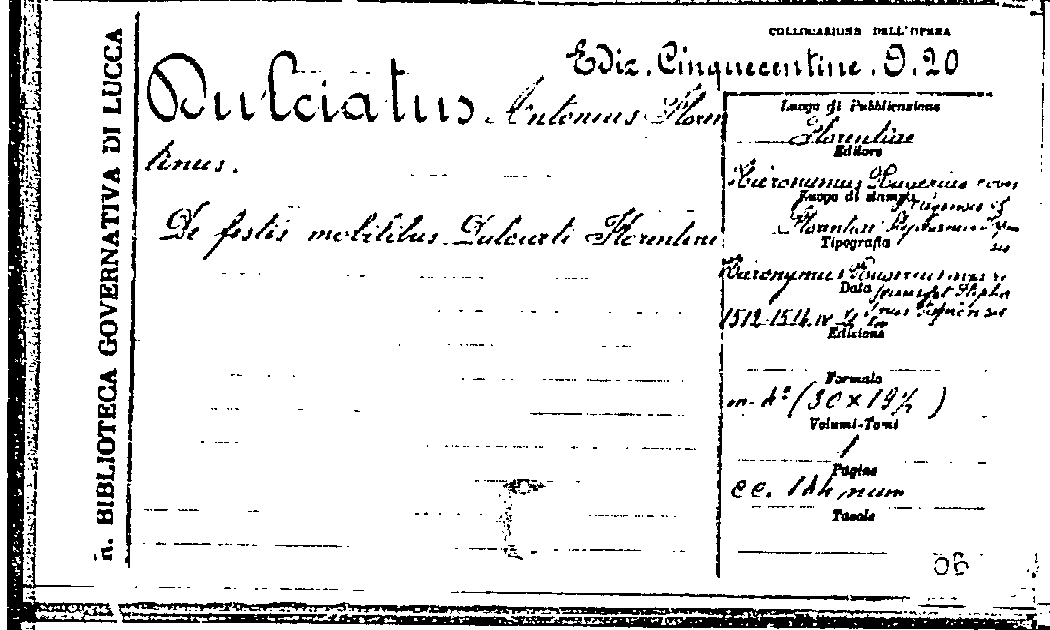 R. BIBLIOTECA GOVERNATIVA DI LUCCA
COLLOCAZIONE DELL'OPERA
Ediz. Cinquecentine. D. 20
Dulciatus Antonius Floren
tinus.
De festis mobilibus Dulciati Florentini
Luogo di Pubblicazione
Florentiae
Editore
Hieronymus
Luogo di stampa
Florentiae
Tipografia
Hieronymus
Data
1512-1514
Edizione
Formato
m-4° (30 x 19½)
Volumi-Tomi
1
Pagine
cc. 144 num
Tavole
06